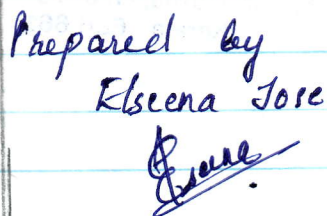 Prepared by
Elseena Jose